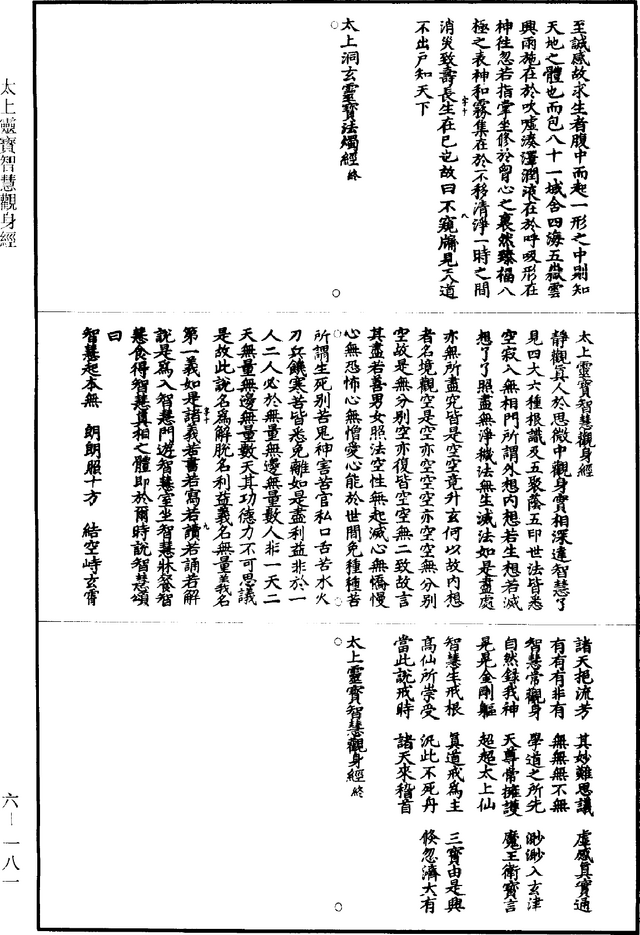 至誠感故求生者腹中而起一形之中則知
天地之體也而包八十一域含四海五嶽雲
興雨施在於吹噓湊澤潤液在於呼吸形在
神往忽若指掌坐修於胷心之裏然臻福八
極之表神和霧集在於不移清淨一時之間
字十
八
消災致壽長生在巳也故曰不窺牖見天道
不出戶知天下
太上洞玄靈寶法燭經終
太上靈寶智慧觀身經
靜觀真人於思微中觀身實相深達智慧了
見四大六種根識及五聚蔭五印世法皆悉
空寂入無相門所謂外想內想若生想若滅
想了了照盡無淨穢法無生滅法如是盡處
亦無所盡究皆是空空竟升玄何以故內想
者名境觀空是空亦空空空亦空空無分別
空故是無分別空亦復皆空空無二致故言
其盡若善男女照法空性無起滅心無憍慢
心無恐怖心無憎愛心能於世間免種種苦
所謂生死別苦鬼神害苦官私口舌苦水火
刀兵饑寒苦皆悉免離如是盡利益非於一
人二人必於無量無邊無量數人非一天二
天無量無邊無量數天其功德力不可思議
是故此說名為解脫名利益義名無量義名
第一義如是諸義若書若寫若讀若誦若解
字十
九
說是為入智慧門遊智慧室坐智慧牀餐智
慧食得智慧真相之體即於爾時說智慧頌
曰
智慧起本無　朗朗照十方　結空峙玄霄
諸天挹流芳　其妙難思議　虛感真實通
有有有非有　無無無不無
智慧常觀身　學道之所先　渺渺入玄津
自然錄我神　天尊常擁護　魔王衛寶言
晃晃金剛軀　超超太上仙
智慧生戒根　真道戒為主　三寶由是興
高仙所崇受　汎此不死丹　倏忽濟大有
當此說戒時　諸天來稽首
太上靈寶智慧觀身經終
太上靈寶智慧觀身經
六—一八一